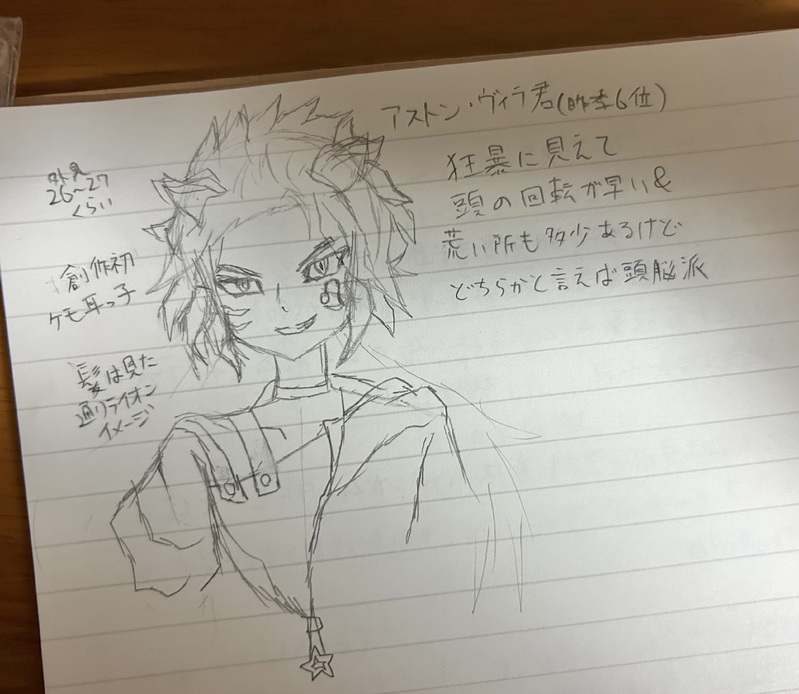 アストン・ヴィラ君(昨季6位)
狂暴に見えて
頭の回転が早い&
荒い所も多少あるけど
どちらかと言えば頭脳派
外見
26~27
くらい
創作初
ケモ耳っ子
髪は見た
通りライオン
イメージ